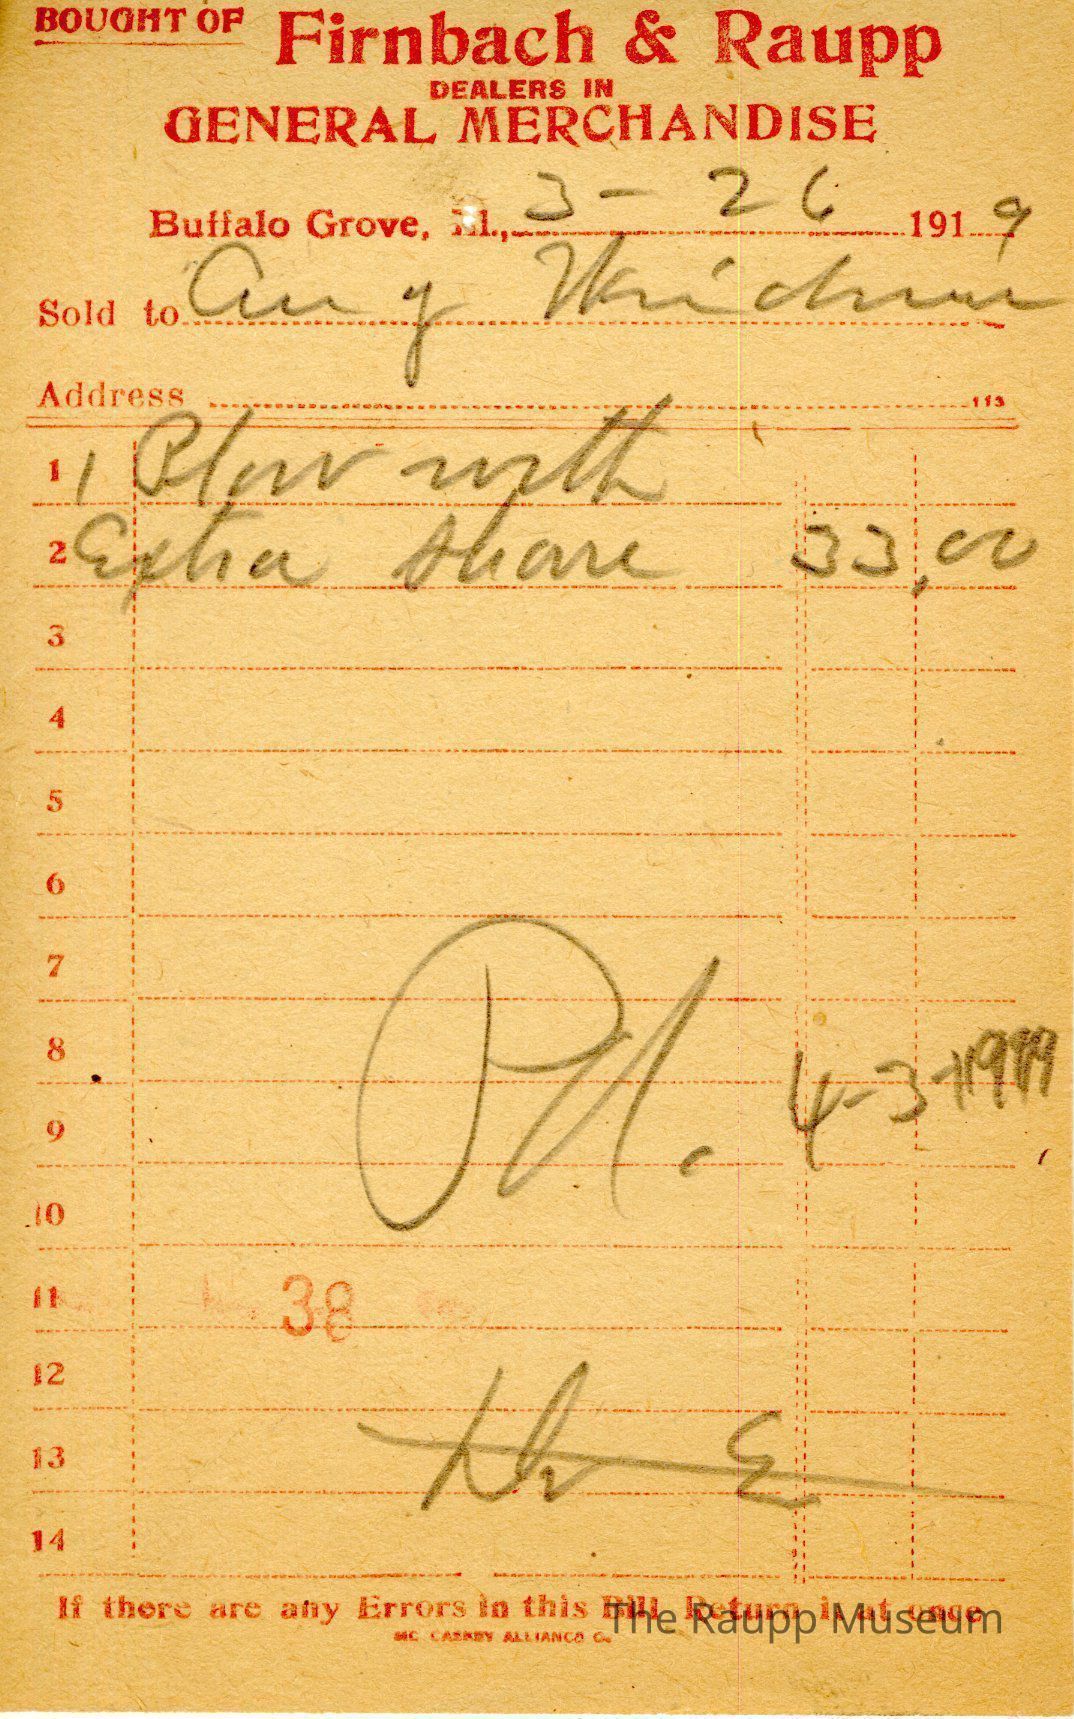 BOUGHT OF Firnbach & Raupp
DEALERS IN
GENERAL MERCHANDISE
Buffalo Grove, Ill., 3 - 26 1919
Sold to Aug
Address
113
1 1 Plow with
2 Extra share 33,00
3
4
5
6
7
8
Pd. 4-3-1919
9
10
11 38
12
13
14
If there are any Errors in this Bill Return it at once
The Raupp Museum